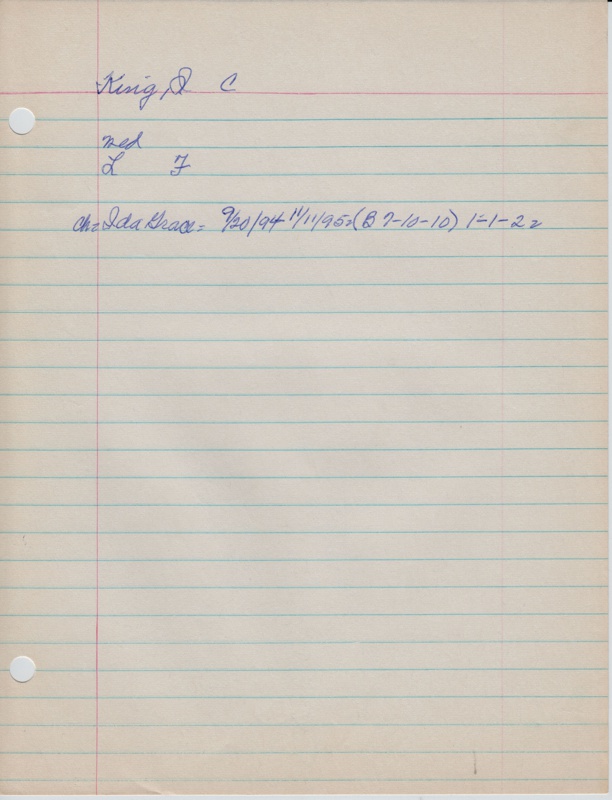 King, I C
med
L F
ch= Ida Grace= 9/20/94 11/11/95=(B 7-10-10) 1-1-2=